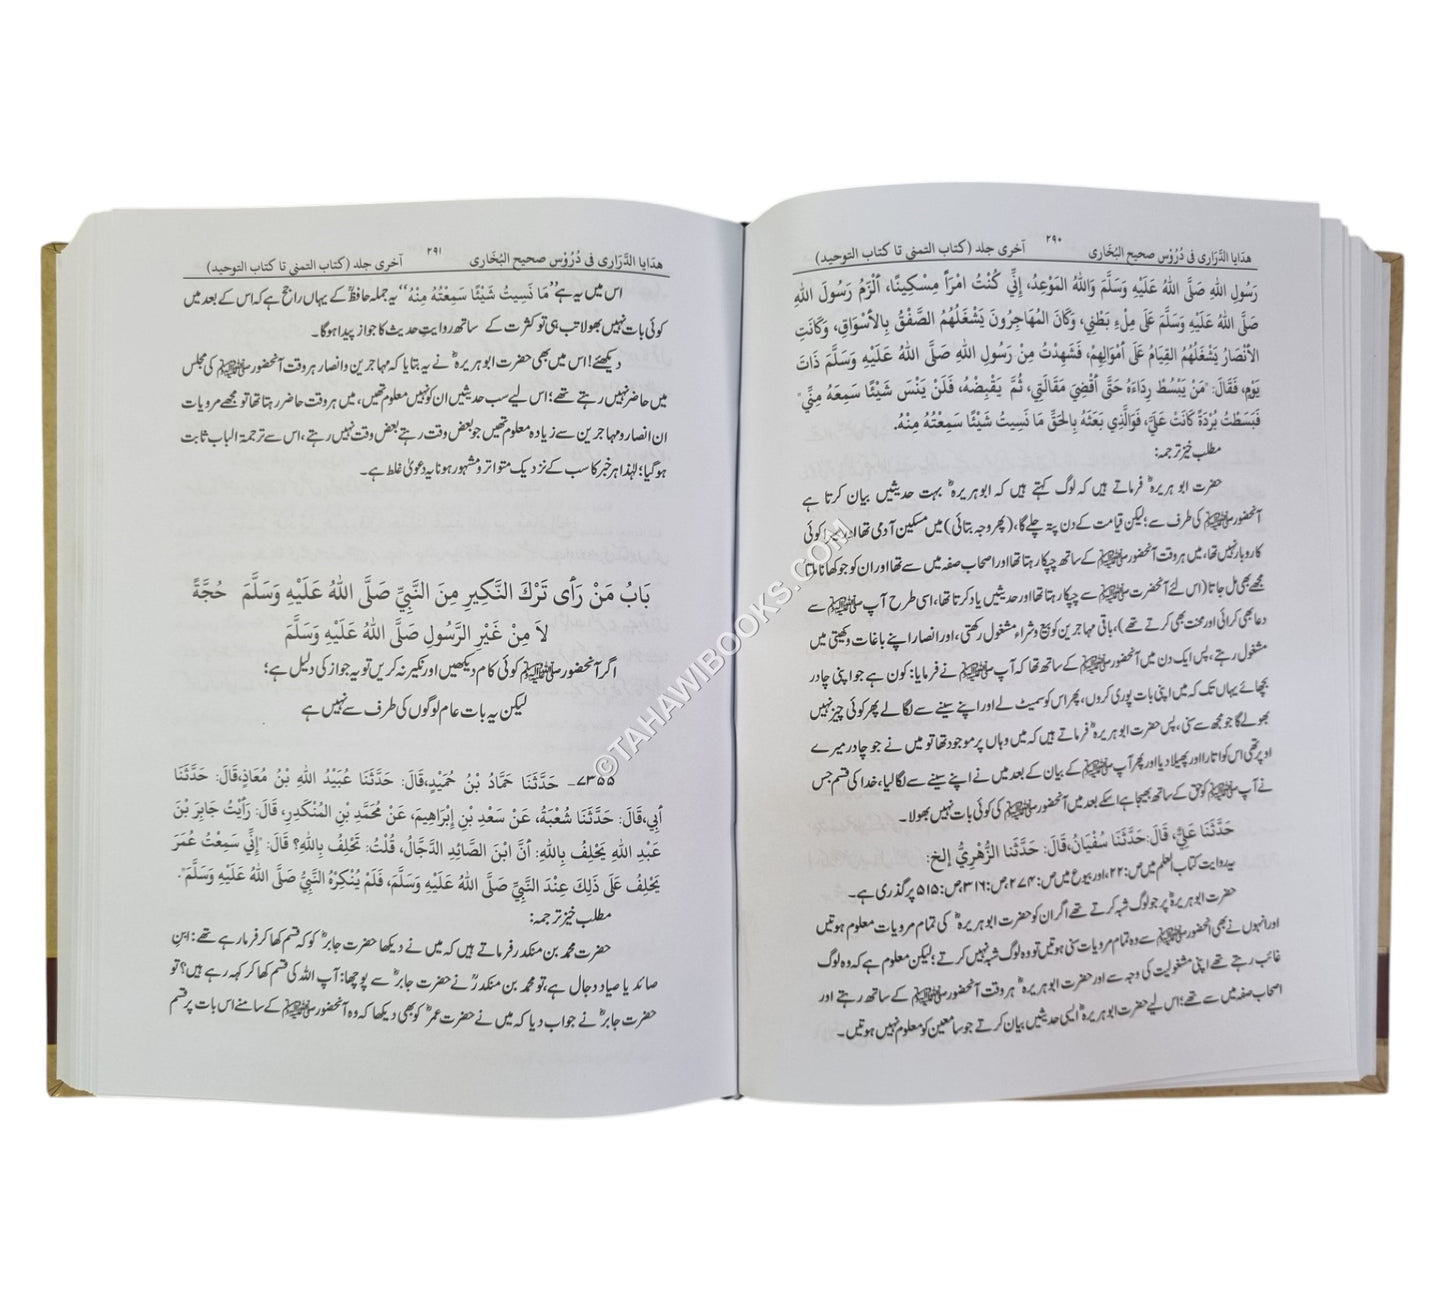 هدايا الدَّرَارى فى دُرُوْس صحيح البُخَارى ۲۹۰ آخرى جلد (كتاب التمنى تا كتاب التوحيد)
رَسُولِ اللهِ صَلَّى اللهُ عَلَيْهِ وَسَلَّمَ وَاللهُ المَوْعِدُ، إِنِّي كُنْتُ امْرَأً مِسْكِينًا، أَلْزَمُ رَسُولَ اللهِ
صَلَّى اللهُ عَلَيْهِ وَسَلَّمَ عَلَى مِلْءِ بَطْنِي، وَكَانَ المُهَاجِرُونَ يَشْغَلُهُمُ الصَّفْقُ بِالأَسْوَاقِ، وَكَانَتِ
الأَنْصَارُ يَشْغَلُهُمُ القِيَامُ عَلَى أَمْوَالِهِمْ، فَشَهِدْتُ مِنْ رَسُولِ اللهِ صَلَّى اللهُ عَلَيْهِ وَسَلَّمَ ذَاتَ
يَوْمٍ، فَقَالَ: "مَنْ يَبْسُطْ رِدَاءَهُ حَتَّى أَقْضِيَ مَقَالَتِي، ثُمَّ يَقْبِضْهُ، فَلَنْ يَنْسَ شَيْئًا سَمِعَهُ مِنِّي"
فَبَسَطْتُ بُرْدَةً كَانَتْ عَلَيَّ، فَوَالَّذِي بَعَثَهُ بِالحَقِّ مَا نَسِيتُ شَيْئًا سَمِعْتُهُ مِنْهُ.
مطلب خیز ترجمہ:
حضرت ابو ہریرہؓ فرماتے ہیں کہ لوگ کہتے ہیں کہ ابو ہریرہؓ بہت حدیثیں بیان کرتا ہے
آنحضور ﷺ کی طرف سے؛ لیکن قیامت کے دن پتہ چلے گا، (پھر وجہ بتائی) میں مسکین آدمی تھا اور میرا کوئی
کاروبار نہیں تھا، میں ہر وقت آنحضور ﷺ کے ساتھ چپکا رہتا تھا اور اصحاب صفہ میں سے تھا اور ان کو جو کھانا ملتا
مجھے بھی مل جاتا (اس لئے آنحضرت ﷺ سے چپکا رہتا تھا اور حدیثیں یاد کرتا تھا، اسی طرح آپ ﷺ سے
دعا بھی کرائی اور محنت بھی کرتے تھے)، باقی مہاجرین کو بیع و شراء مشغول رکھتی، اور انصار اپنے باغات وکھیتی میں
مشغول رہتے، پس ایک دن میں آنحضور ﷺ کے ساتھ تھا کہ آپ ﷺ نے فرمایا: کون ہے جو اپنی چادر
بچھائے یہاں تک کہ میں اپنی بات پوری کروں، پھر اس کو سمیٹ لے اور اپنے سینے سے لگالے پھر کوئی چیز نہیں
بھولے گا جو مجھ سے سنی، پس حضرت ابو ہریرہؓ فرماتے ہیں کہ میں وہاں پر موجود تھا تو میں نے جو چادر میرے
اوپر تھی اس کو اتارا اور پھیلا دیا اور پھر آپ ﷺ کے بیان کے بعد میں نے اپنے سینے سے لگا لیا، خدا کی قسم جس
نے آپ ﷺ کو حق کے ساتھ بھیجا ہے اسکے بعد میں آنحضور ﷺ کی کوئی بات نہیں بھولا۔
حَدَّثَنَا عَلِيٌّ، قَالَ: حَدَّثَنَا سُفْيَانُ، قَالَ: حَدَّثَنا الزُّهْرِيُّ إلخ:
یہ روایت کتاب العلم میں ص: ۲۲، اور بیوع میں ص: ۲۷۴، ص: ۳۱۶، ص: ۵۱۵ پر گذری ہے۔
حضرت ابو ہریرہؓ پر جو لوگ شبہ کرتے تھے اگر ان کو حضرت ابو ہریرہؓ کی تمام مرویات معلوم ہوتیں
اور انہوں نے بھی آنحضور ﷺ سے وہ تمام مرویات سنی ہوتیں تو وہ لوگ شبہ نہیں کرتے؛ لیکن معلوم ہے کہ وہ لوگ
غائب رہتے تھے اپنی مشغولیت کی وجہ سے اور حضرت ابو ہریرہؓ ہر وقت آنحضور ﷺ کے ساتھ رہتے اور
اصحاب صفہ میں سے تھے؛ اس لیے حضرت ابو ہریرہؓ ایسی حدیثیں بیان کرتے جو سامعین کو معلوم نہیں ہوتیں۔
هدايا الدَّرَارى فى دُرُوْس صحيح البُخَارى ۲۹۱ آخرى جلد (كتاب التمنى تا كتاب التوحيد)
اس میں یہ ہے "مَا نَسِيتُ شَيْئًا سَمِعْتُهُ مِنْهُ" یہ جملہ حافظؒ کے یہاں راجح ہے کہ اس کے بعد میں
کوئی بات نہیں بھولا تب ہی تو کثرت کے ساتھ روایتِ حدیث کا جواز پیدا ہوگا۔
دیکھئے! اس میں بھی حضرت ابو ہریرہؓ نے یہ بتایا کہ مہاجرین وانصار ہر وقت آنحضور ﷺ کی مجلس
میں حاضر نہیں رہتے تھے؛ اس لیے سب حدیثیں ان کو نہیں معلوم تھیں، میں ہر وقت حاضر رہتا تھا تو مجھے مرویات
ان انصار و مہاجرین سے زیادہ معلوم تھیں جو بعض وقت رہتے بعض وقت نہیں رہتے، اس سے ترجمۃ الباب ثابت
ہوگیا؛ لہٰذا ہر خبر کا سب کے نزدیک متواتر و مشہور ہونا یہ دعویٰ غلط ہے۔
بَابُ مَنْ رَأَى تَرْكَ النَّكِيرِ مِنَ النَّبِيِّ صَلَّى اللهُ عَلَيْهِ وَسَلَّمَ حُجَّةً
لاَ مِنْ غَيْرِ الرَّسُولِ صَلَّى اللهُ عَلَيْهِ وَسَلَّمَ
اگر آنحضور ﷺ کوئی کام دیکھیں اور نکیر نہ کریں تو یہ جواز کی دلیل ہے؛
لیکن یہ بات عام لوگوں کی طرف سے نہیں ہے
۷۳۵۵- حَدَّثَنَا حَمَّادُ بْنُ حُمَيْدٍ، قَالَ: حَدَّثَنَا عُبَيْدُ اللهِ بْنُ مُعَاذٍ، قَالَ: حَدَّثَنَا
أَبِي، قَالَ: حَدَّثَنَا شُعْبَةُ، عَنْ سَعْدِ بْنِ إِبْرَاهِيمَ، عَنْ مُحَمَّدِ بْنِ المُنْكَدِرِ، قَالَ: رَأَيْتُ جَابِرَ بْنَ
عَبْدِ اللهِ يَحْلِفُ بِاللهِ: أَنَّ ابْنَ الصَّائِدِ الدَّجَّالُ، قُلْتُ: تَحْلِفُ بِاللهِ؟ قَالَ: "إِنِّي سَمِعْتُ عُمَرَ
يَحْلِفُ عَلَى ذَلِكَ عِنْدَ النَّبِيِّ صَلَّى اللهُ عَلَيْهِ وَسَلَّمَ، فَلَمْ يُنْكِرْهُ النَّبِيُّ صَلَّى اللهُ عَلَيْهِ وَسَلَّمَ".
مطلب خیز ترجمہ:
حضرت محمد بن منکدر فرماتے ہیں کہ میں نے دیکھا حضرت جابرؓ کو کہ قسم کھا کر فرما رہے تھے: ابن
صائد یا صیاد دجال ہے، تو محمد بن منکدرؒ نے حضرت جابرؓ سے پوچھا: آپ اللہ کی قسم کھا کر کہہ رہے ہیں؟ تو
حضرت جابرؓ نے جواب دیا کہ میں نے حضرت عمرؓ کو بھی دیکھا کہ وہ آنحضور ﷺ کے سامنے اس بات پر قسم
©TAHAWIBOOKS.COM